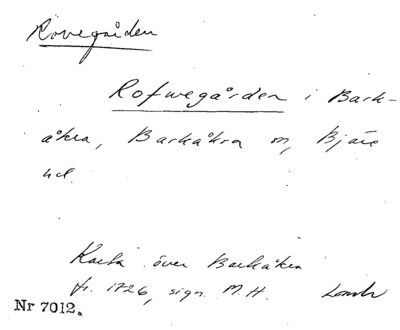 Rövegården
Rofwegården i Bark-
åkra, Barkåkra sn, Bjäre
hd.
Karta över Barkåkra
fr. 1726, sign. M.H.
Nr 7012.